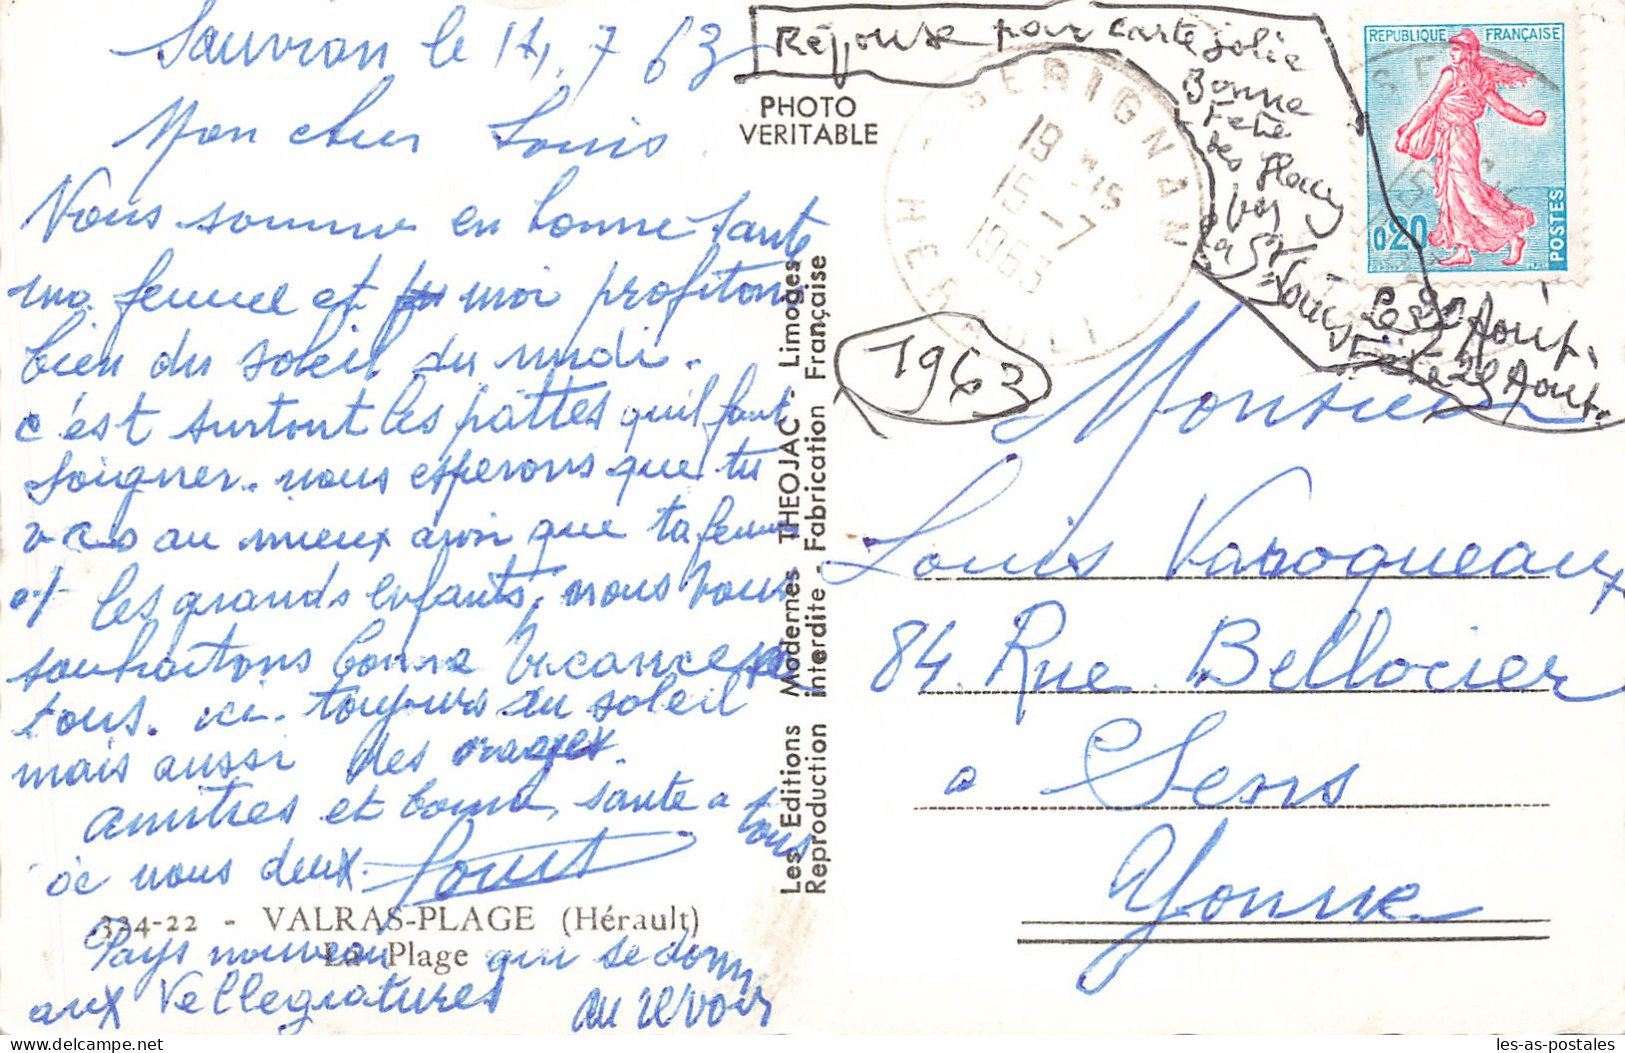 Sauvian le 14.7 63
Mon cher Louis
Nous somme en bonne sante
ma femme et moi profitons
bien du soleil du midi.
c'est surtout les pattes qu'il faut
soigner. nous esperons que tu
vas au mieux ainsi que ta femme
et les grands enfants, nous vous
souhaitons bonne Vacance a
tous. ici toujours du soleil
mais aussi des orages.
amities et bonne sante a tous
de nous deux.
334-22 - VALRAS-PLAGE (Hérault)
La Plage
Pays nouveau qui se donne
aux Vellegiatures
au revoir
PHOTO
VERITABLE
Les Editions Modernes THEOJAC - Limoges
Reproduction Interdite - Fabrication Française
Réponse pour carte jolie
Bonne
Fete
des fleurs
Louis
Le 30 Aout.
25 Aout.
1963
SERIGNAN
19 H 15
15-7
1963
HERAULT
REPUBLIQUE FRANÇAISE
0,20
POSTES
Monsieur
Louis Varoqueaux
84. Rue Bellocier
a Sens
Yonne
les-as-postales